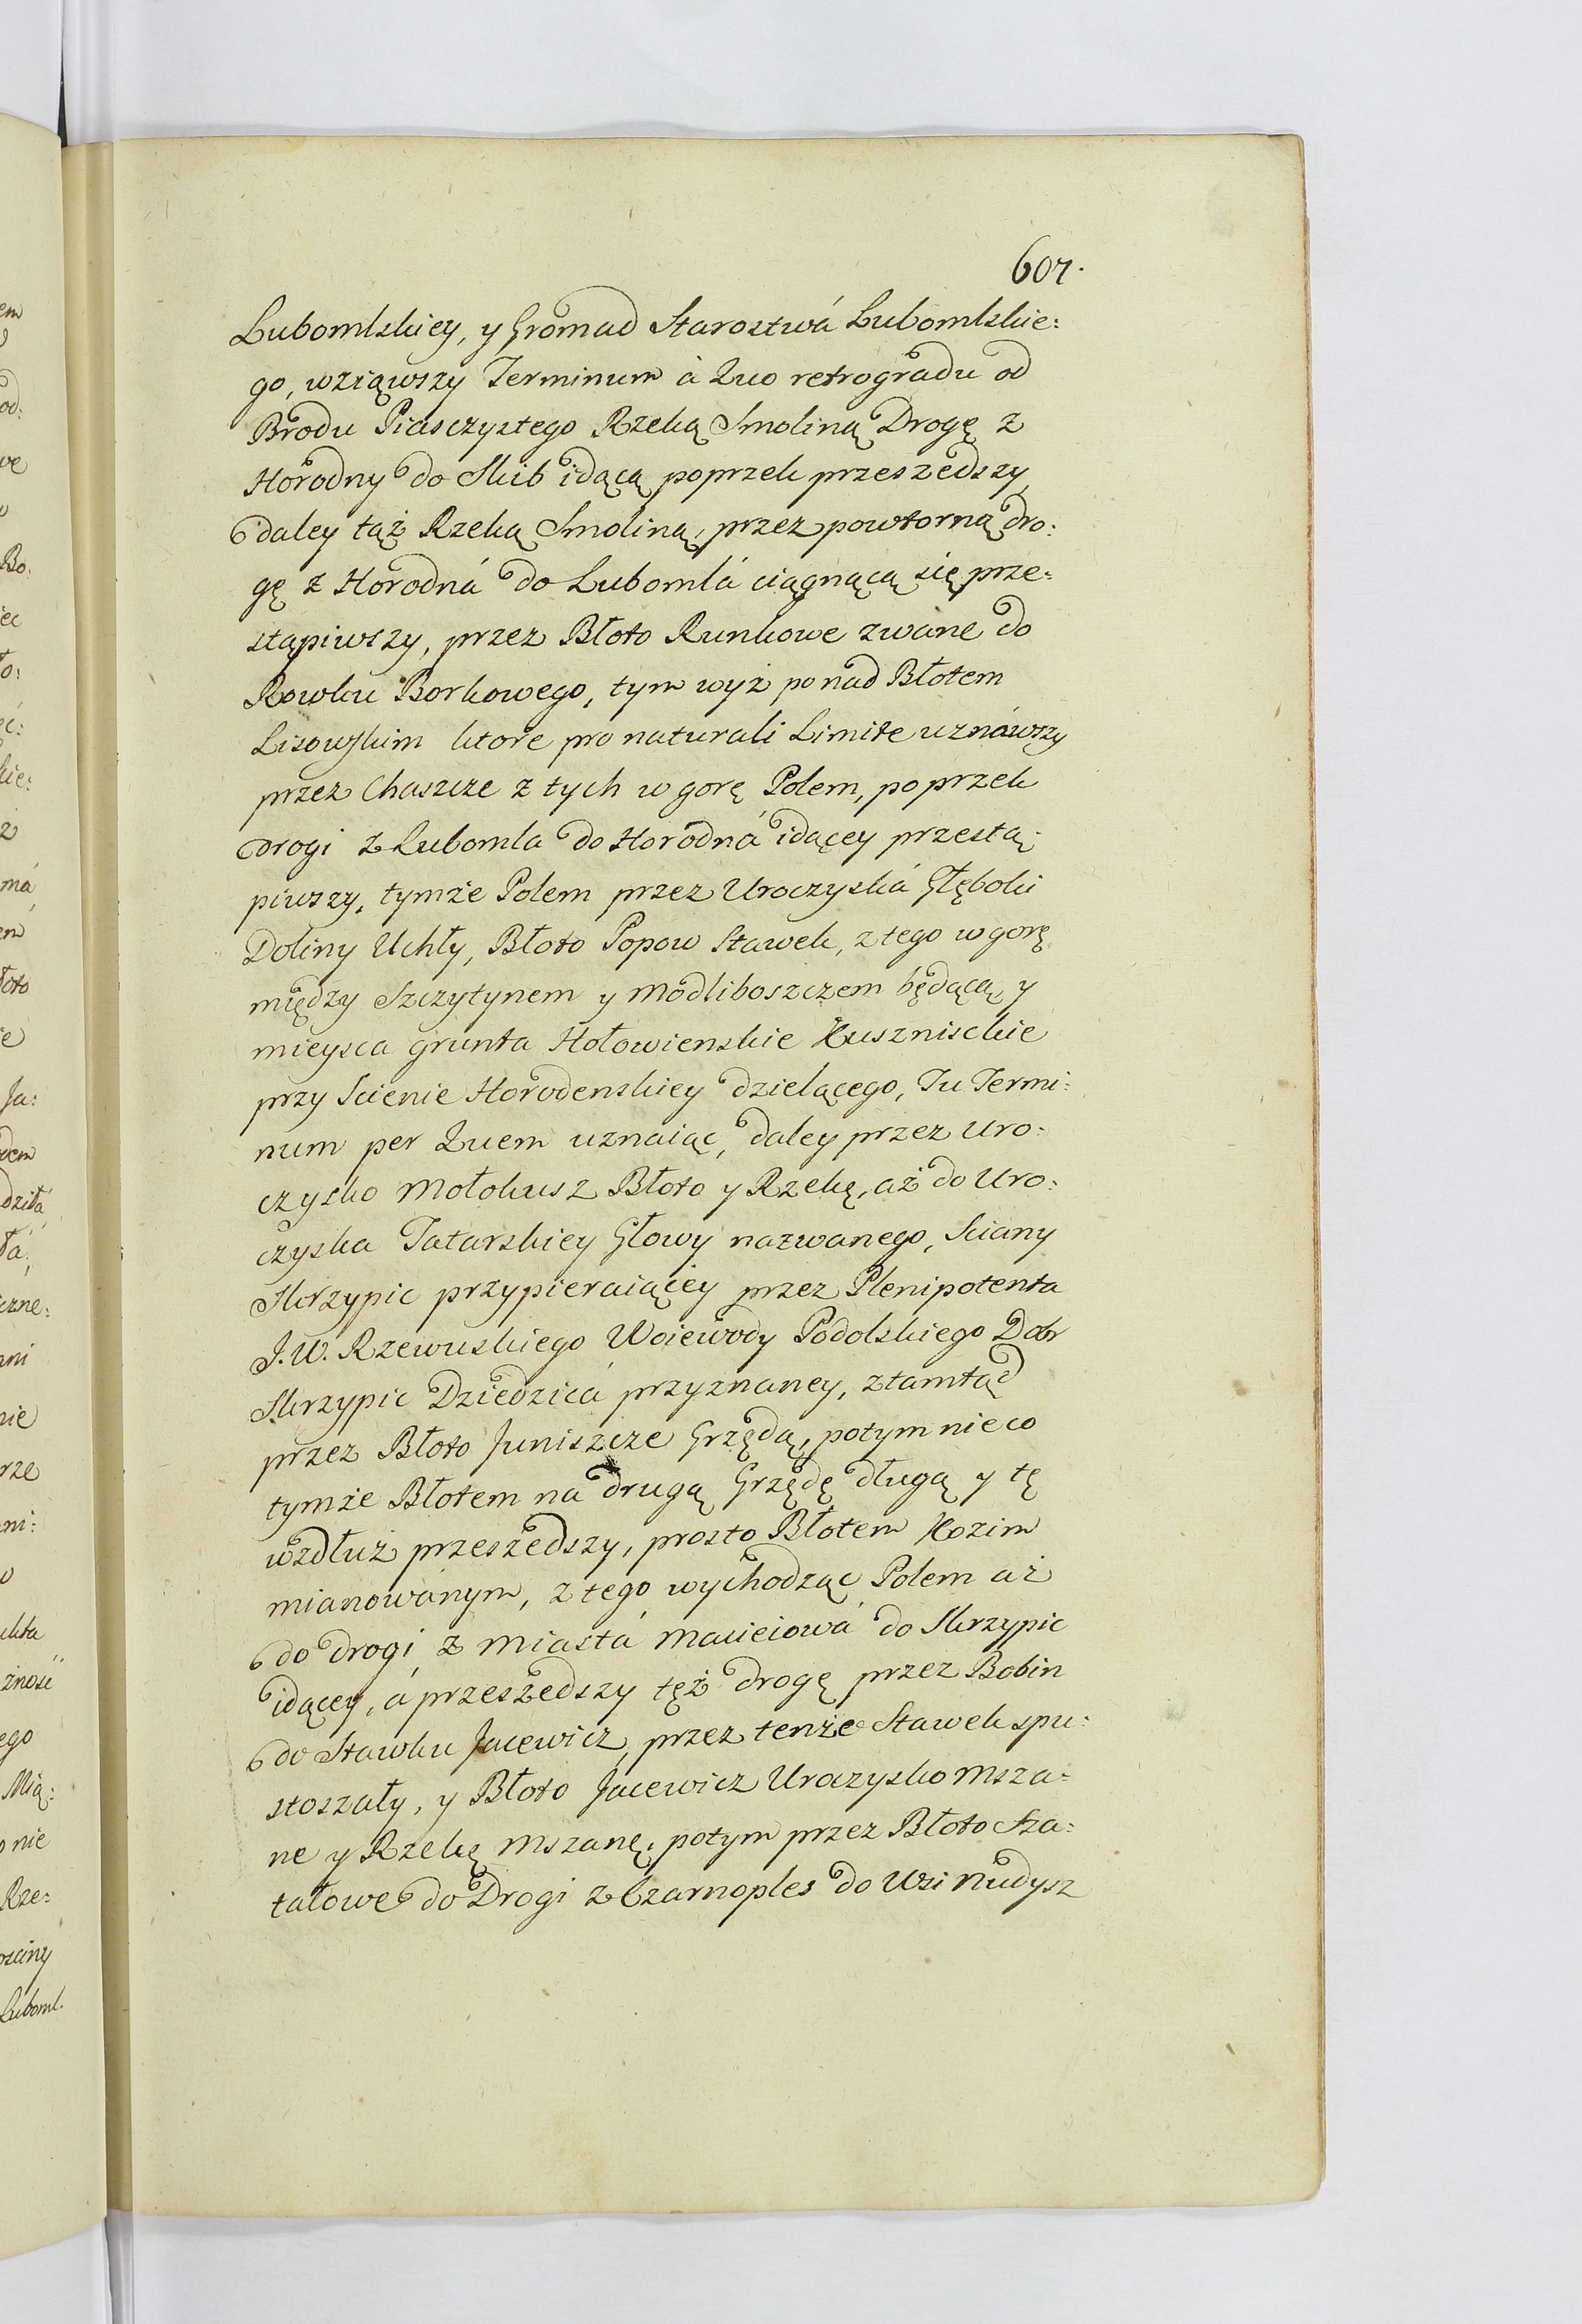 607.
Lubomlskiey, y Gromad Starostwá Lubomlskie:
go, wziąwszy Terminum à Quo retrogradu od
Brodu Piasczystego Rzeką Smoliną Drogę z
Horodny do Skib idącą poprzek przeszedszy,
daley tąż Rzeką Smoliną, przez powtorną dro:
gę z Horodná do Lubomlá ciągnącą się prze:
stąpiwszy, przez Błoto Runkowe zwane do
Rowku Borkowego, tym wyż ponad Błotem
Lisowskim ktore pro naturali Limite uznáwszy
przez Chaszcze z tych w gorę Polem, poprzek
drogi z Lubomla do Horodná idącey przestą:
piwszy, tymże Polem przez Uroczyská Głęboki
Doliny Uchły, Błoto Popow Stawek, z tego w gorę
między Szczytynem y Modliboszczem będącą y
mieysca grunta Hołowienskie Kusznisckie
przy Scienie Horodenskiey dzielącego, Tu Termi:
num per Quem uznaiąc, daley przez Uro:
czysko Mołokusz Błoto y Rzekę, aż do Uro:
czyska Tatarskiey Głowy nazwanego, Sciany
Skrzypic przypieraiącey przez Plenipotenta
J. W. Rzewuskiego Woiewody Podolskiego Dobr
Skrzypic Dziedzicá przyznaney, ztamtąd
przez Błoto Juniszcze Grzędą, potym nieco
tymże Błotem na drugą Grzędę długą y tę
wzdłuż przeszedszy, prosto Błotem Kozim
mianowánym, z tego wychodząc Polem aż
do drogi z Miastá Macieiowá do Skrzypic
idącey, á przeszedszy tęż drogę przez Bobin
do Stawku Jacewicz, przez tenże Stawek spu:
stoszały, y Błoto Jacewicz Uroczysko Msza:
ne y Rzekę Mszanę, potym przez Błoto Sza:
tałowe do Drogi z Czarnoples do Wsi Nudysz